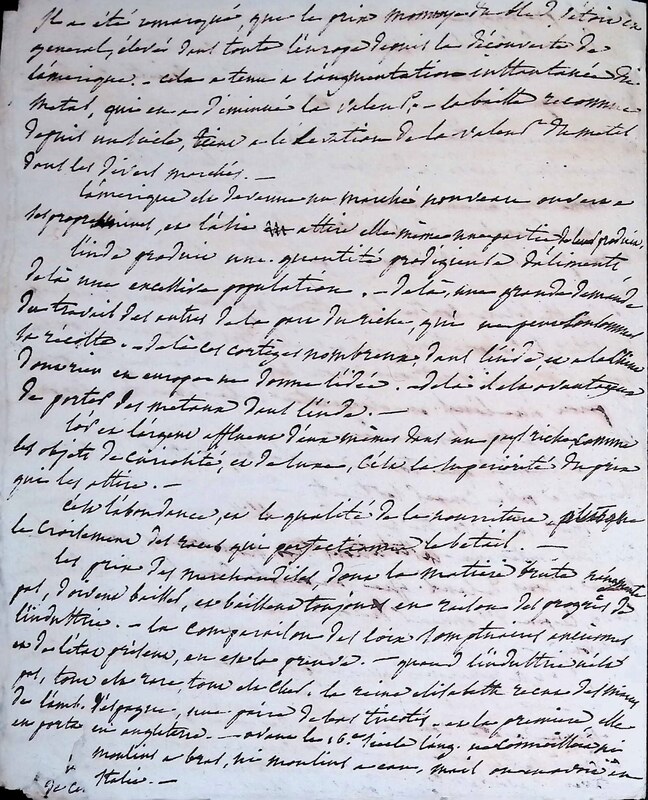 Il a été remarqué que le prix monnoye du bled s'étoit en
general, élevé dans toute l'europe depuis la découverte de
l'amerique. – cela a tenu a l'augmentation instantanée du
métal, qui en a diminué la valeur. – la baisse reconnue
depuis un siecle, tient a l'élévation de la valeur du metal
dans les divers marchés. –
l'amerique est devenue un marché nouveau ouvert a
ses propres mines, et l'asie attire elle même une partie de leurs produits,
l'inde produit une quantité prodigieuse d'aliments
delà une excessive population. – delà, une grande demande
du travail des autres de la part du riche, qui ne peut consommer
sa récolte. – delà ces cortèges nombreux, dans l'inde, et a la chine
dont rien en europe ne donne l'idée. – delà et les avantages
de porter des metaux dans l'inde. –
l'or et l'argent affluent d'eux mêmes dans un pays riche, comme
les objets de curiosité, et de luxe, c'est la superiorité du prix
qui les attire. –
c'est l'abondance, et la qualité de la nourriture, plutôt que
le croisement des races qui perfectionne le betail. –
les prix des marchandises dont la matiere brute n'augmente
pas, doivent baisser, et baissent toujours en raison des progrès de
l'industrie. – la comparaison des loix somptuaires anciennes
et de l'état présent, en est la preuve. – quand l'industrie n'est
pas, tout est rare, tout est cher. la reine elisabeth recut des mains
de l'amb. d'espagne, une paire de bas tricotés. – et la premiere elle
en porta en angleterre. – avant le 16.e siècle l'ang. ne connoissoit ni
moulins a bras, ni moulins a eau, mais on en avoit en
Italie. –